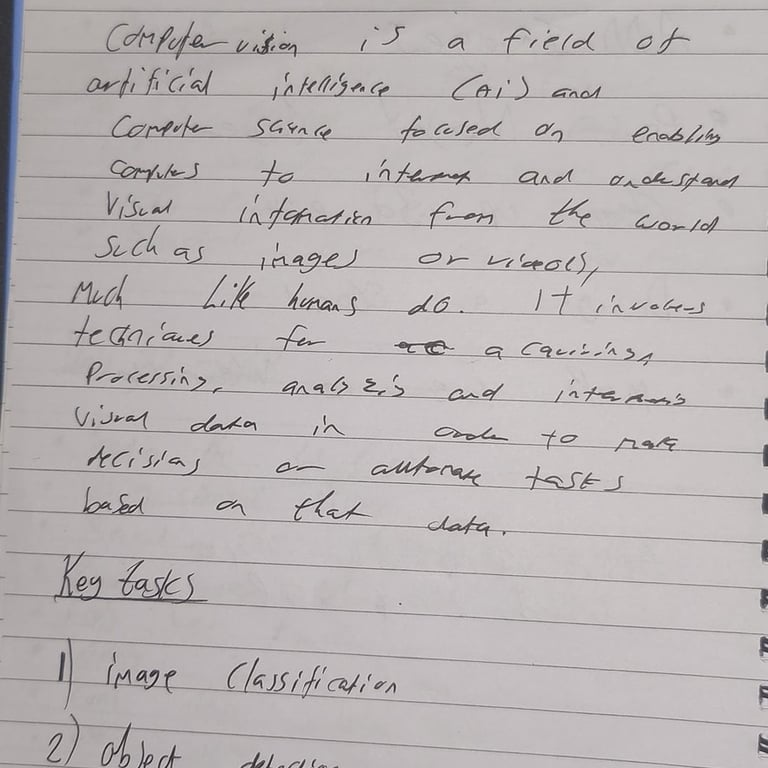 Computer vision is a field of
artificial intelligence (Ai) and
Computer science focused on enabling
computers to interpret and understand
Visual information from the world
Such as images or videos,
Much Like humans do. It involves
techniques for acquiring,
Processing, analyzis and
Visual data in order to make
decisions or automate tasks
based on that data.
Key tasks
1) image Classification
2) object detection